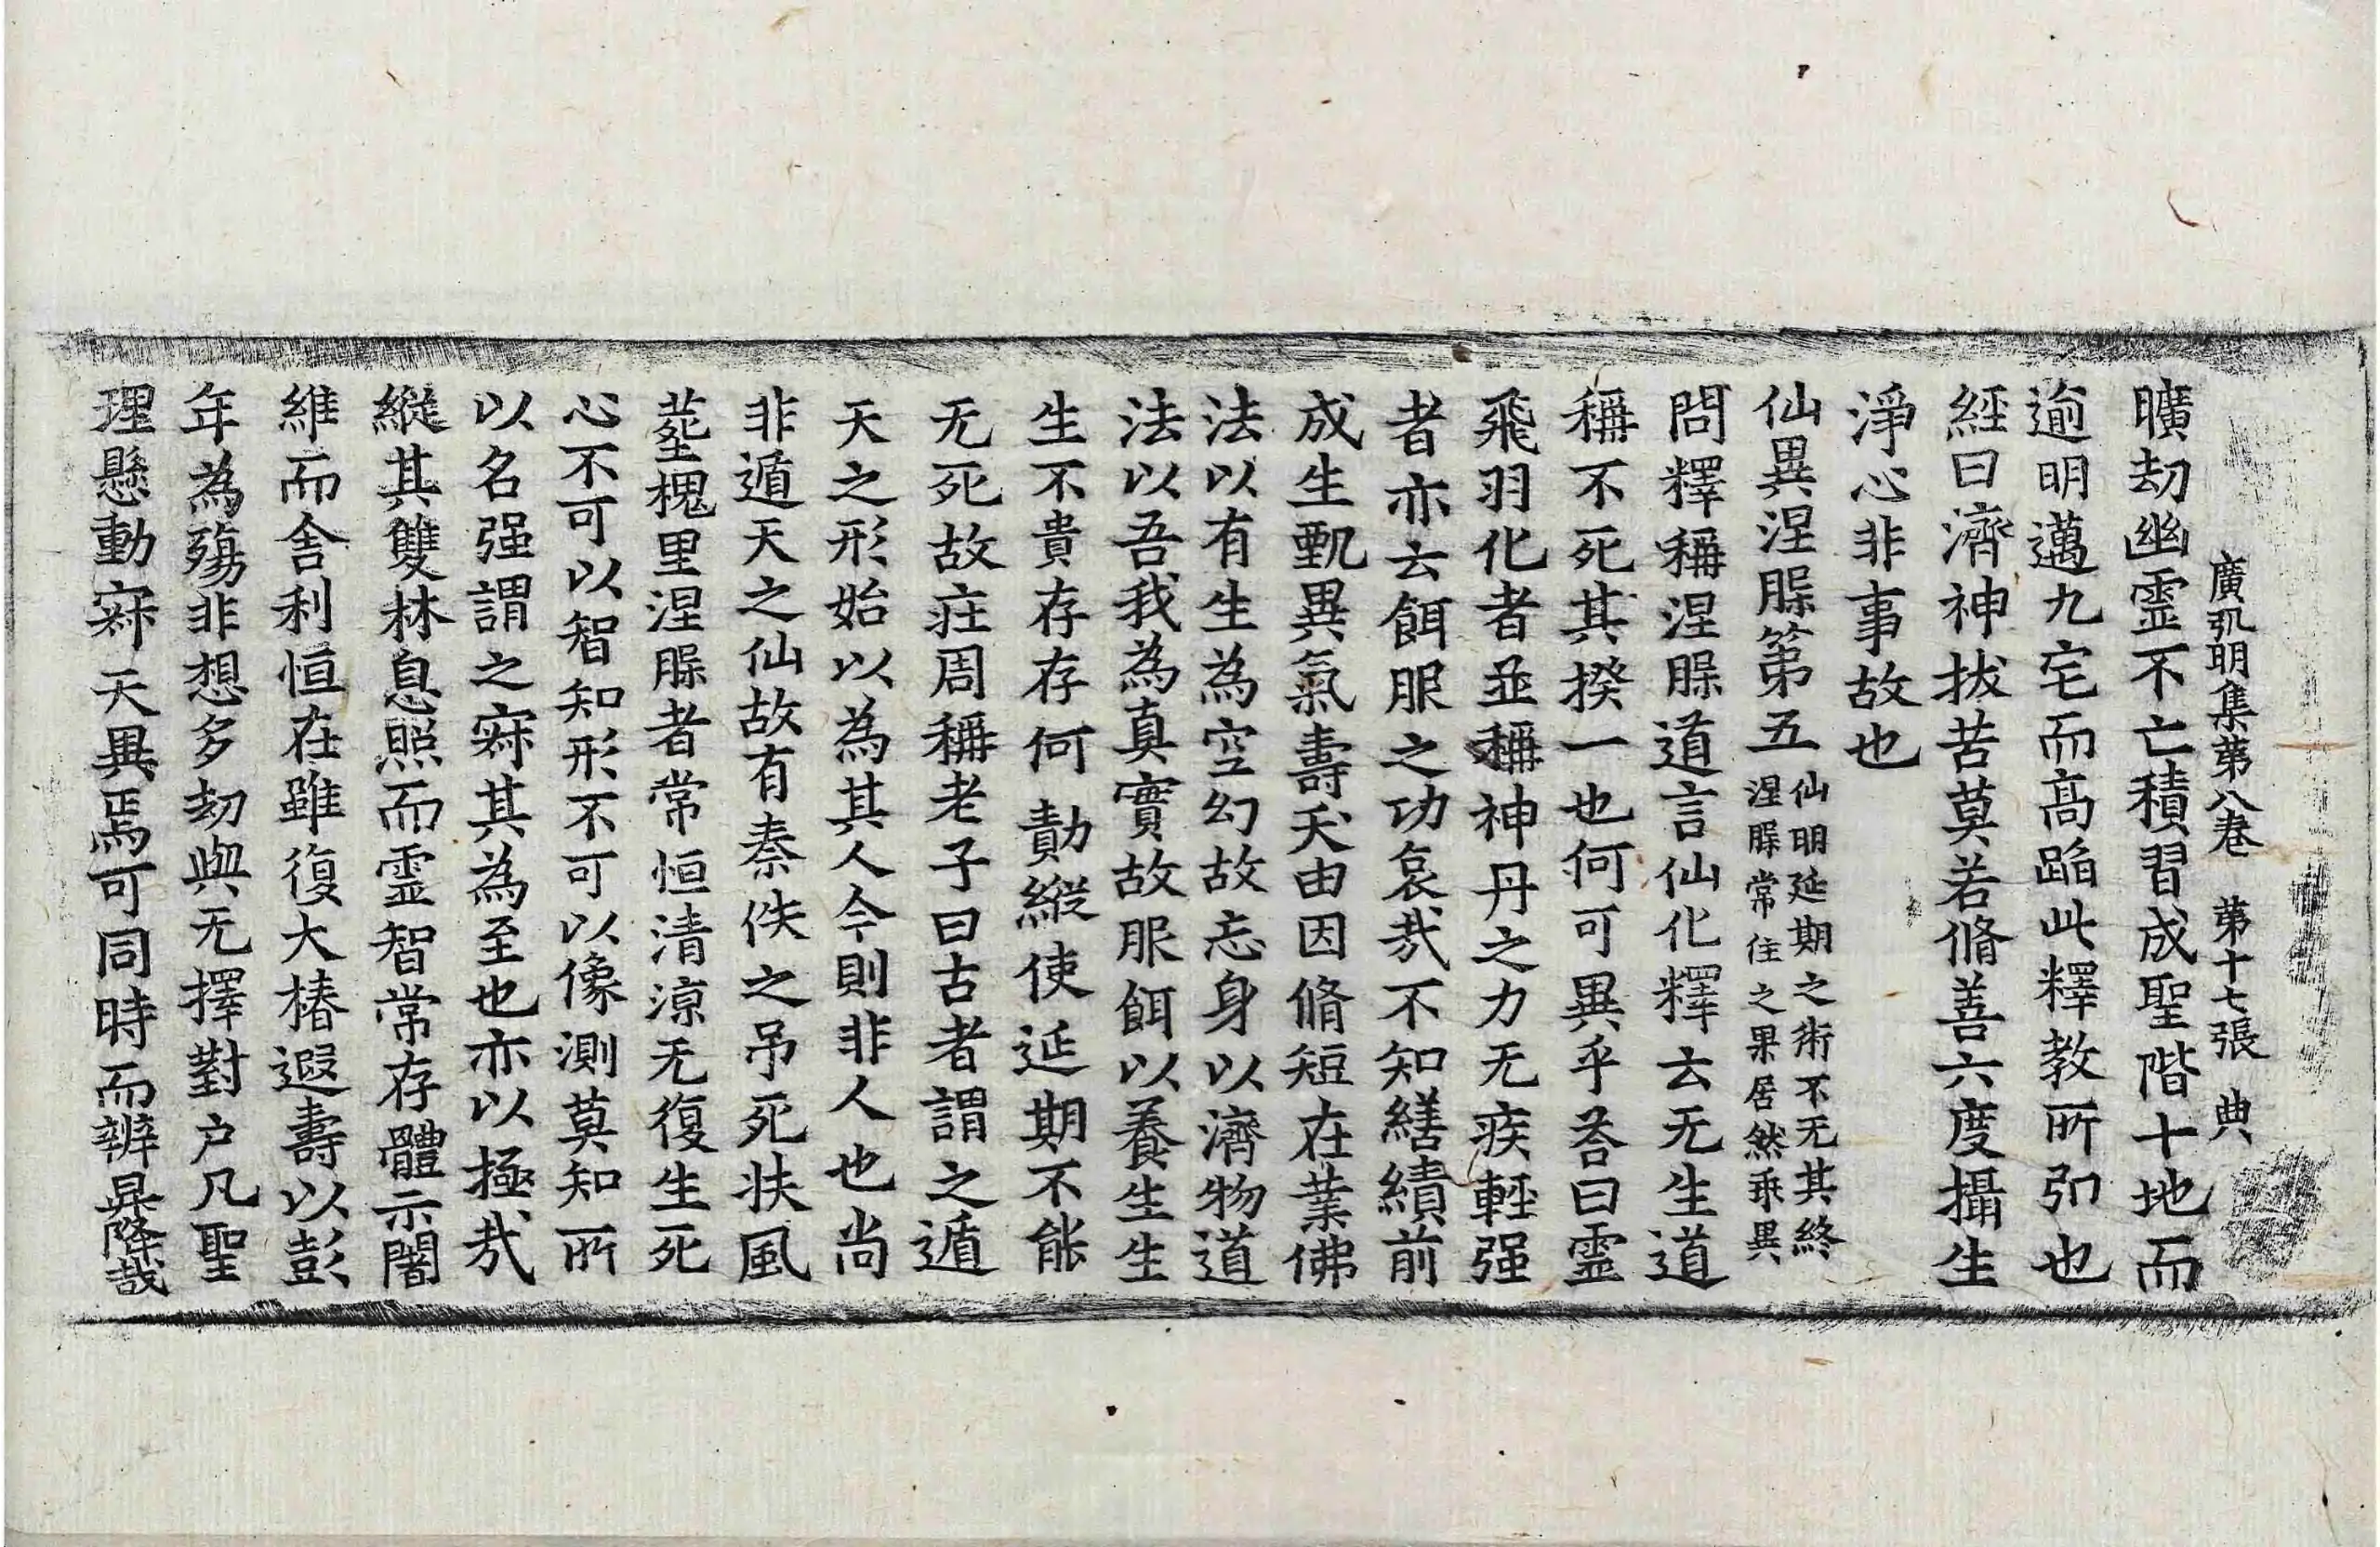 廣弘明集第八卷 第十七張 典
曠劫幽靈不亡積習成聖階十地而
逾明邁九宅而高蹈此釋教所引也
經曰濟神拔苦莫若脩善六度攝生
淨心非事故也
仙異涅槃第五 仙明延期之術不无其終
涅槃常住之果居然乖異
問釋稱涅槃道言仙化釋云无生道
稱不死其揆一也何可異乎荅曰靈
飛羽化者並稱神丹之力无疾輕强
者亦云餌服之功哀哉不知繕績前
成生甄異氣壽夭由因脩短在業佛
法以有生為空幻故忘身以濟物道
法以吾我為真實故服餌以養生生
生不貴存存何勣縱使延期不能
无死故莊周稱老子曰古者謂之遁
天之形始以為其人今則非人也尚
非遁天之仙故有秦佚之吊死扶風
葬槐里涅槃者常恒清涼无復生死
心不可以智知形不可以像測莫知所
以名强謂之寂其為至也亦以極哉
縱其雙林息照而靈智常存體示闍
維而舍利恒在雖復大椿遐壽以彭
年為殤非想多劫與无擇對户凡聖
理懸動寂天異焉可同時而辨昇降哉